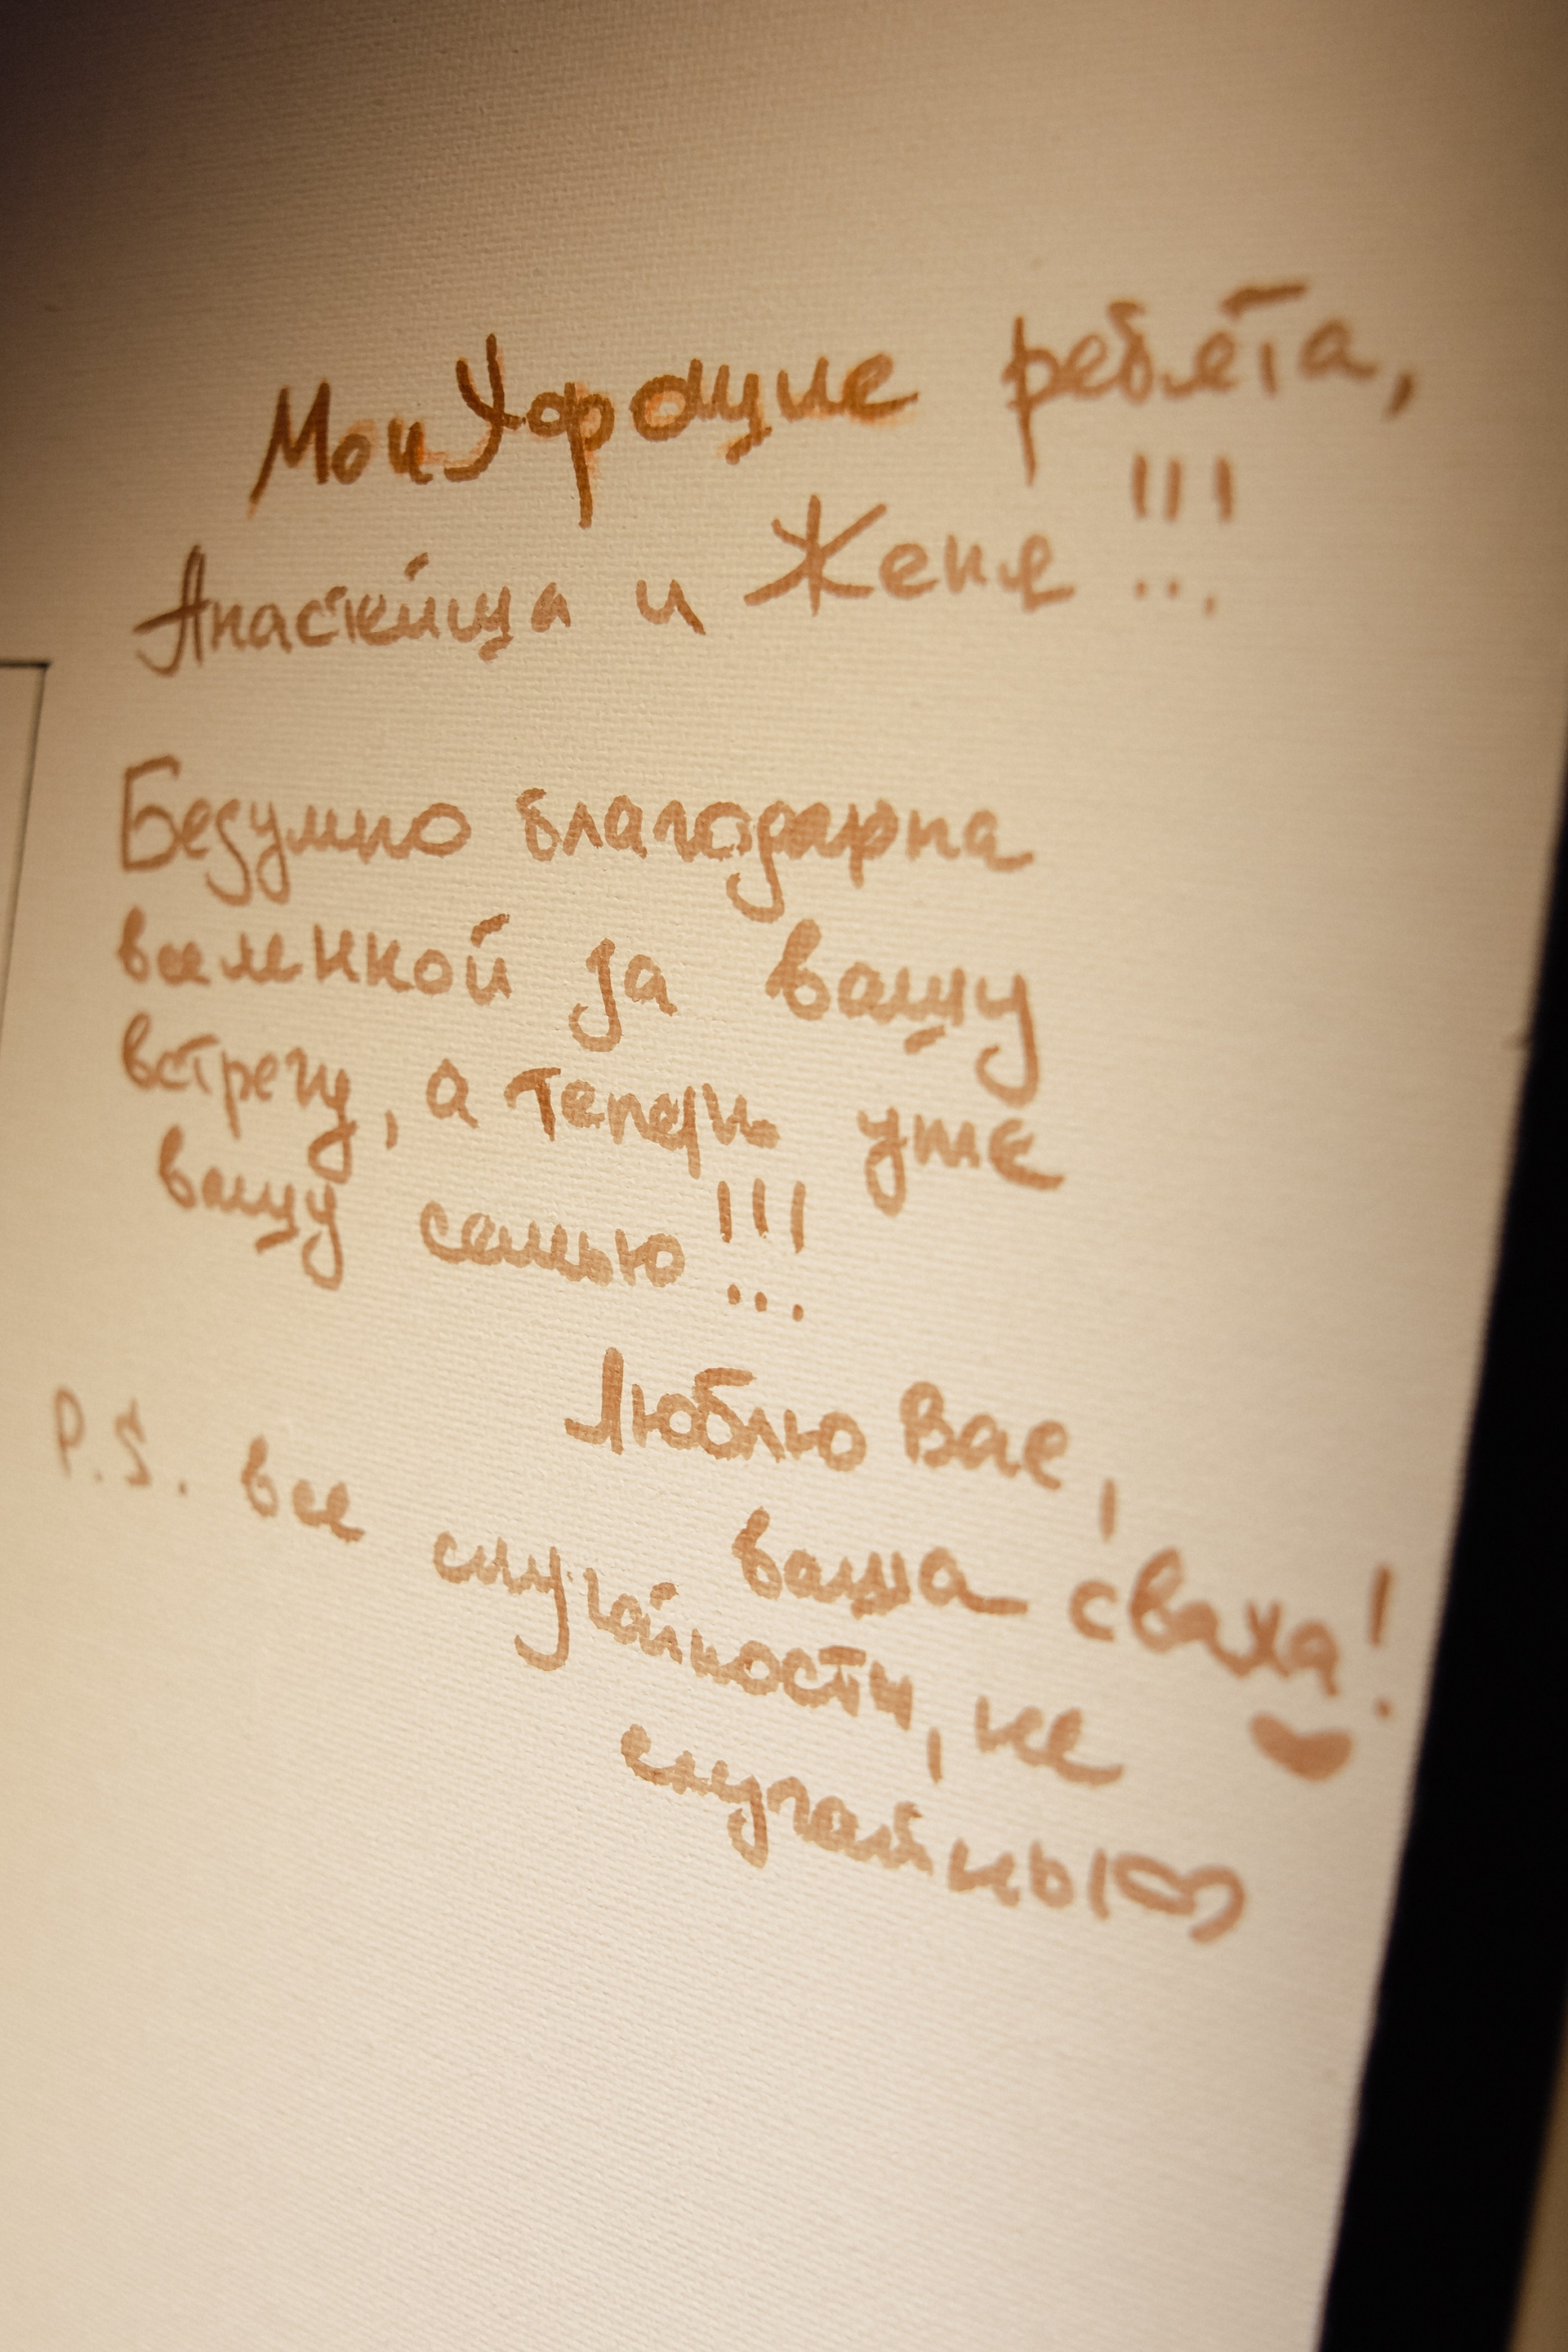 Мои Хорошие ребята,
Анастейша и Женя!!!
Безумно благодарна
вселенной за вашу
встречу, а теперь уже
вашу семью!!!
Люблю Вас,
ваша сваха!
P.S. все
случайности, не
случайны